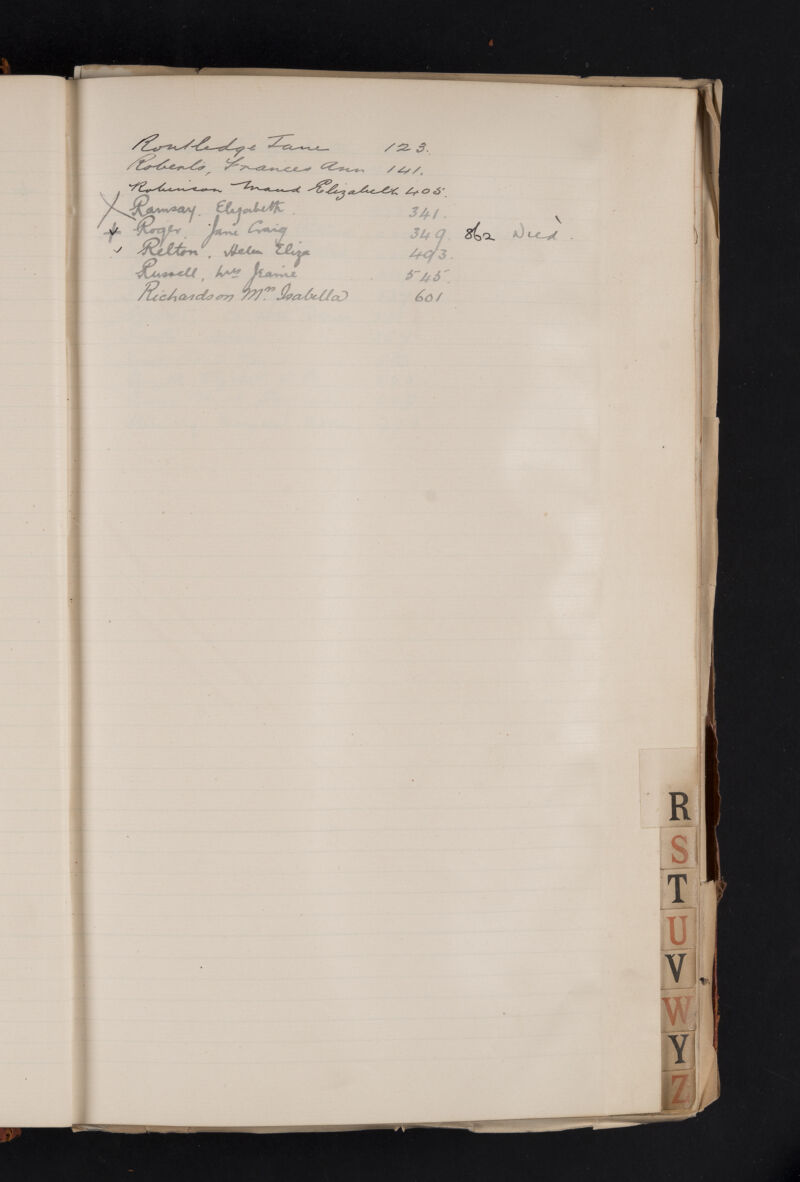 Routledge Jane 123.
Roberts, Frances Ann 141.
Robinson Maud Elizabeth 405.
Ramsay. Elizabeth. 341.
Roger, Jane Craig 349. 862 Died.
Relton, Helen Eliza 493.
Russell, Mrs Jeanie 545.
Richardson Mrs Isabella 601
R
S
T
U
V
W
Y
Z